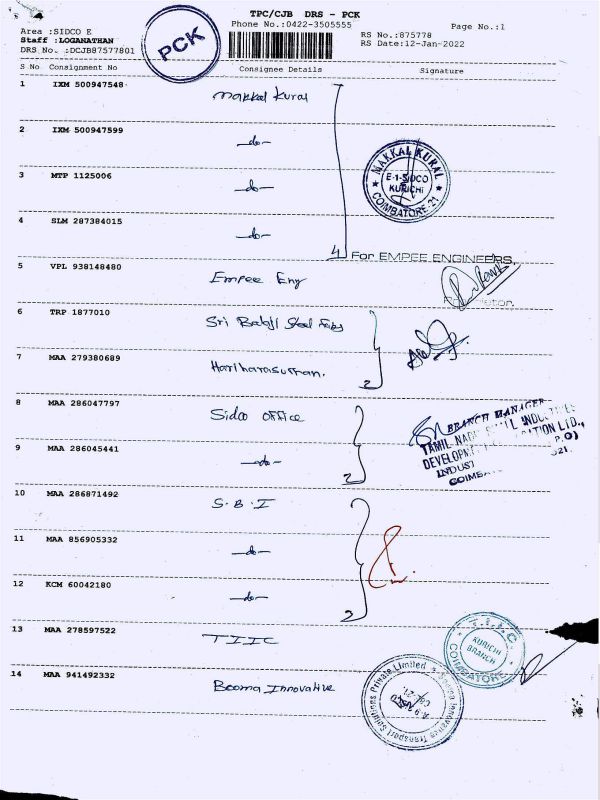 TPC/CJB DRS - PCK
Phone No.:0422-3505555
Page No.:1
Area :SIDCO E
Staff :LOGANATHAN
DRS No. :DCJB87577801
PCK
RS No.:875778
RS Date:12-Jan-2022
S No Consignment No Consignee Details Signature
1 IXM 500947548 Makkal Kural
2 IXM 500947599 -do-
MAKKAL KURAL
E-1-SIDCO
KURICHI
COIMBATORE 21
3 MTP 1125006 -do-
4 SLM 287384015 -do-
4 For EMPEE ENGINEERS,
5 VPL 938148480 Empee Eng
6 TRP 1877010 Sri Balaji Steel
7 MAA 279380689 Hariharasuthan.
2
8 MAA 286047797 Sidco office
BRANCH MANAGER
TAMIL NADU
DEVELOPM
INDUST
COIMB
9 MAA 286045441 -do-
2
10 MAA 286871492 S.B.I
11 MAA 856905332 -do-
12 KCM 60042180 -do-
2
13 MAA 278597522 TIIC
KURICHI
BRANCH
COIMBATORE
14 MAA 941492332 Booma Innovative
Booma Innovative Transport Solutions Private Limited